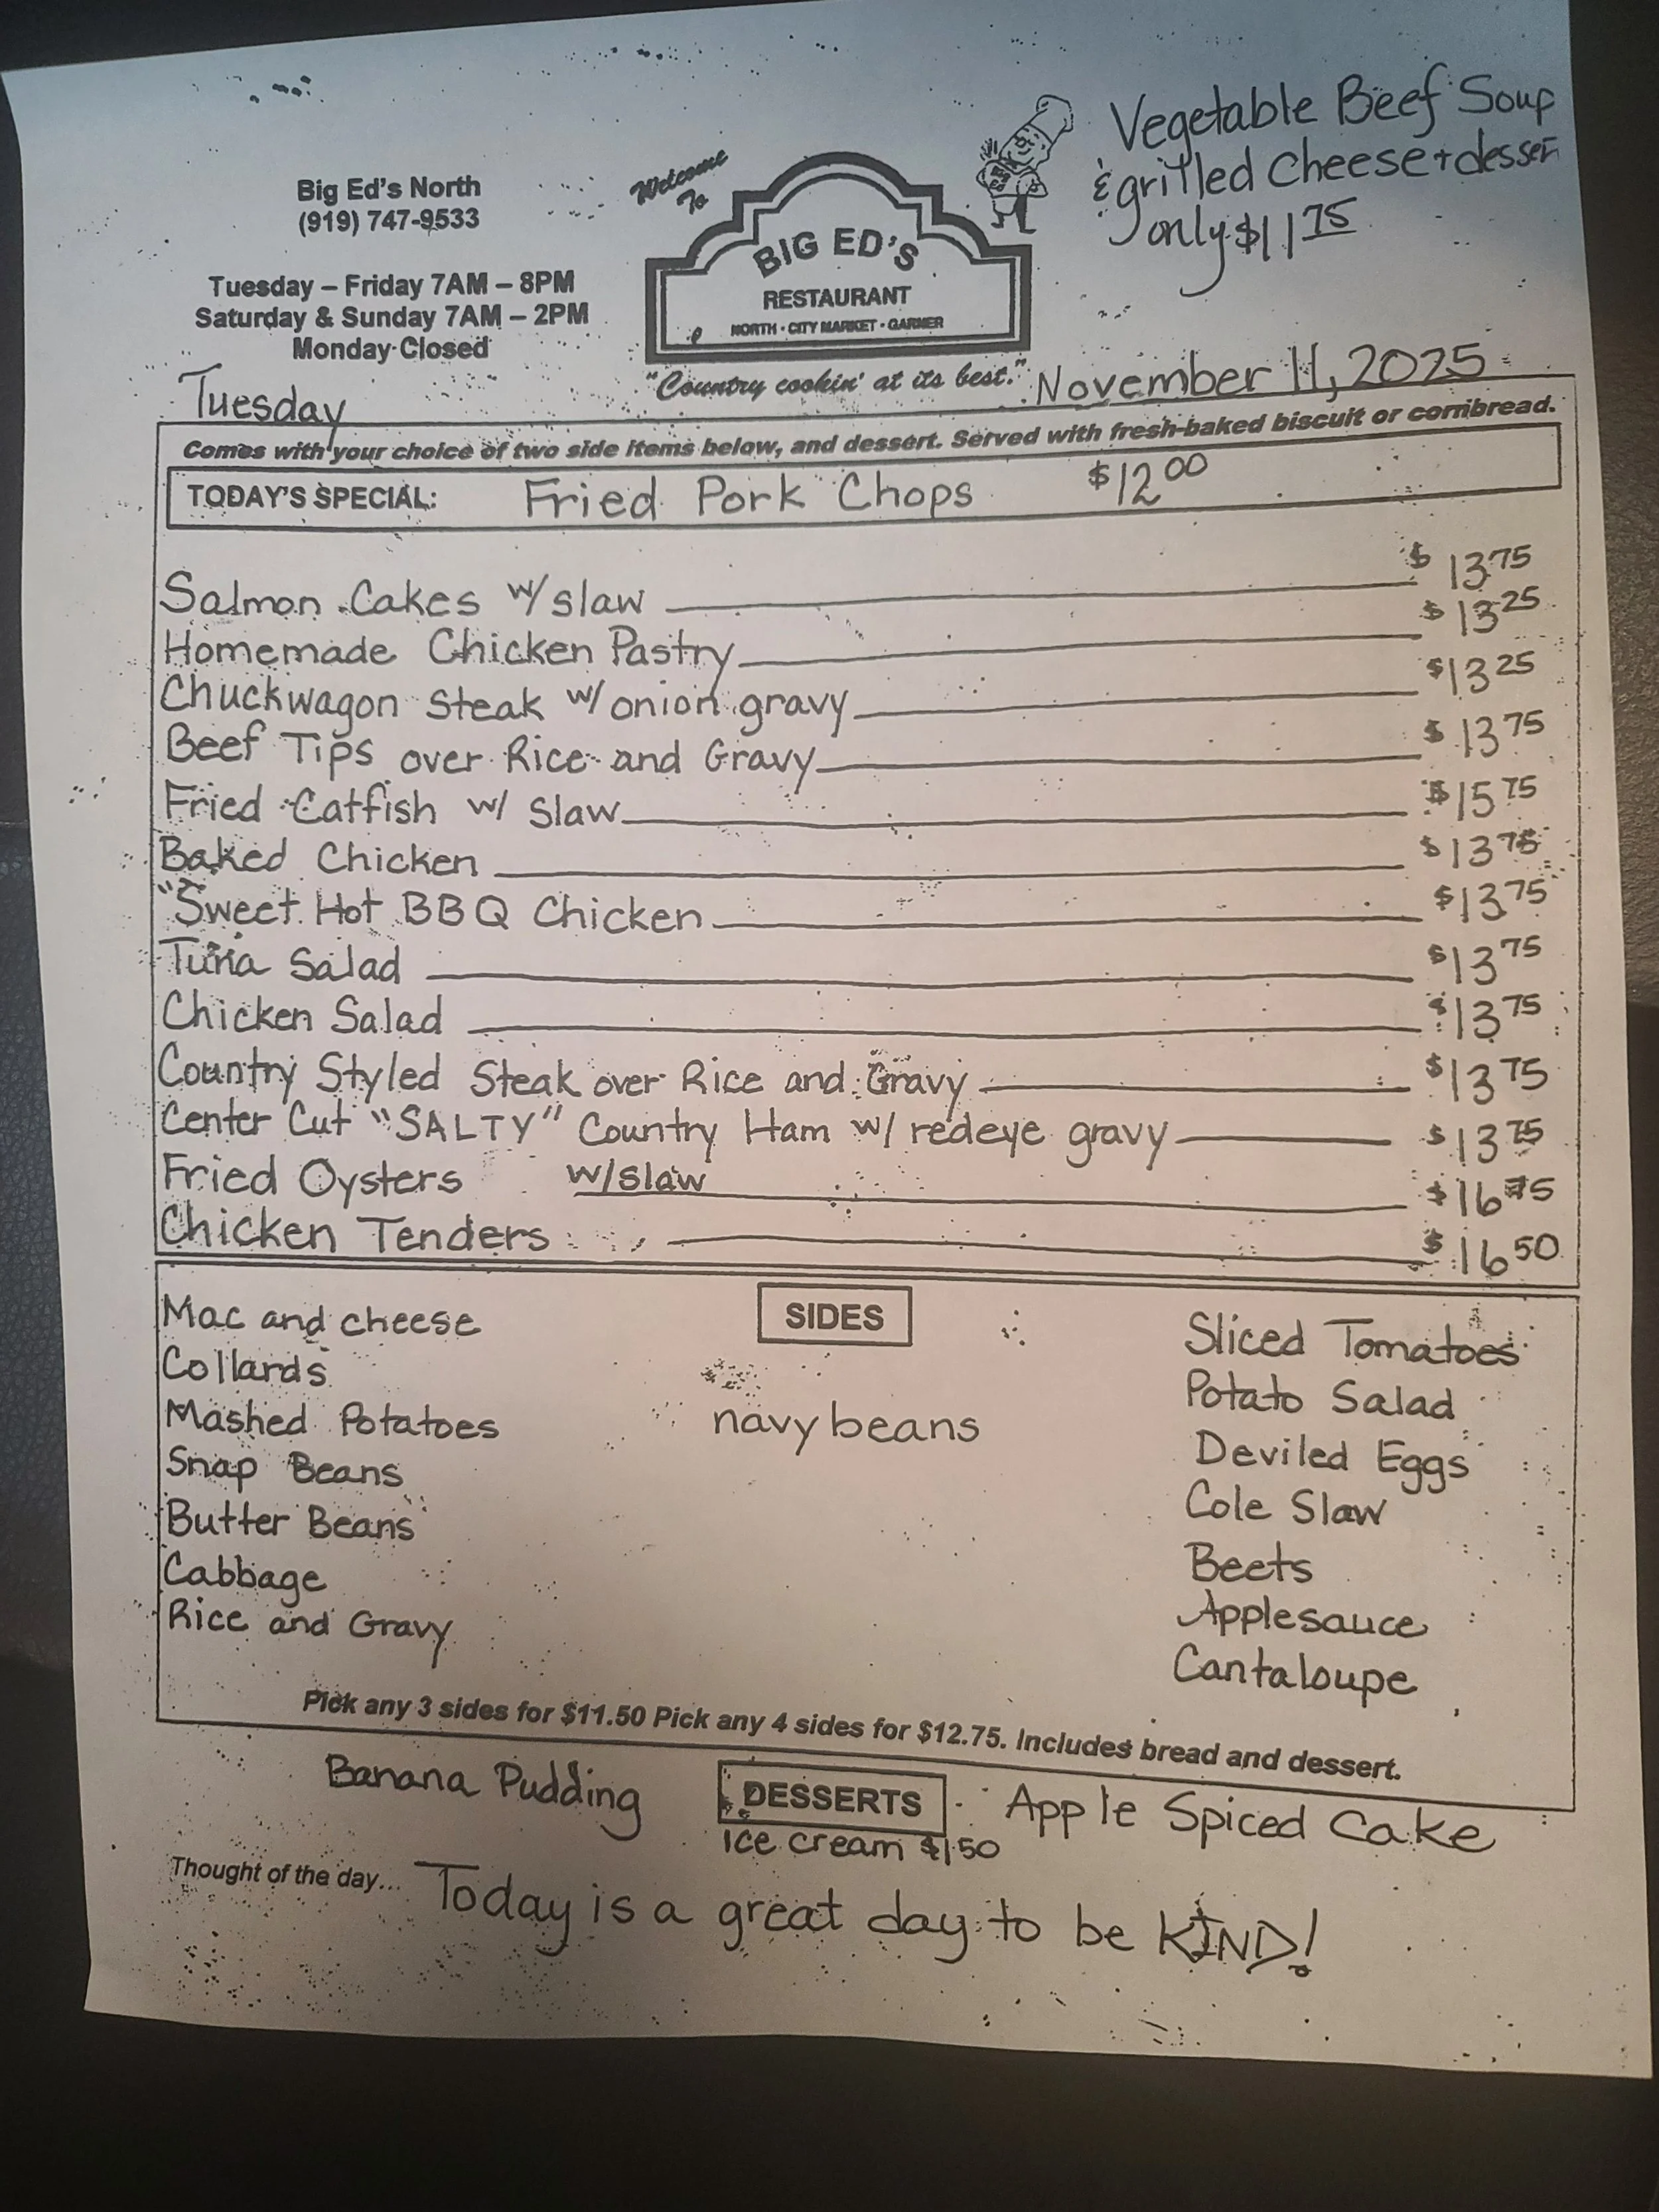 Vegetable Beef Soup
& grilled cheese + dessert
only $11 75
Big Ed's North
(919) 747-9533
Tuesday – Friday 7AM – 8PM
Saturday & Sunday 7AM – 2PM
Monday Closed
Welcome
To
BIG ED'S
RESTAURANT
NORTH • CITY MARKET • GARNER
"Country cookin' at its best."
Tuesday
November 11, 2025
Comes with your choice of two side items below, and dessert. Served with fresh-baked biscuit or cornbread.
TODAY'S SPECIAL: Fried Pork Chops $12 00
Salmon Cakes w/ slaw $13 75
Homemade Chicken Pastry $13 25
Chuckwagon Steak w/ onion gravy $13 25
Beef Tips over Rice and Gravy $13 75
Fried Catfish w/ Slaw $15 75
Baked Chicken $13 75
"Sweet Hot BBQ Chicken $13 75
Tuna Salad $13 75
Chicken Salad $13 75
Country Styled Steak over Rice and Gravy $13 75
Center Cut "SALTY" Country Ham w/ redeye gravy $13 75
Fried Oysters w/ slaw $16 75
Chicken Tenders $16 50
SIDES
Mac and cheese
Collards
Mashed Potatoes
Snap Beans
Butter Beans
Cabbage
Rice and Gravy
navy beans
Sliced Tomatoes
Potato Salad
Deviled Eggs
Cole Slaw
Beets
Applesauce
Cantaloupe
Pick any 3 sides for $11.50 Pick any 4 sides for $12.75. Includes bread and dessert.
Banana Pudding DESSERTS Apple Spiced Cake
Ice cream $1.50
Thought of the day... Today is a great day to be KIND!